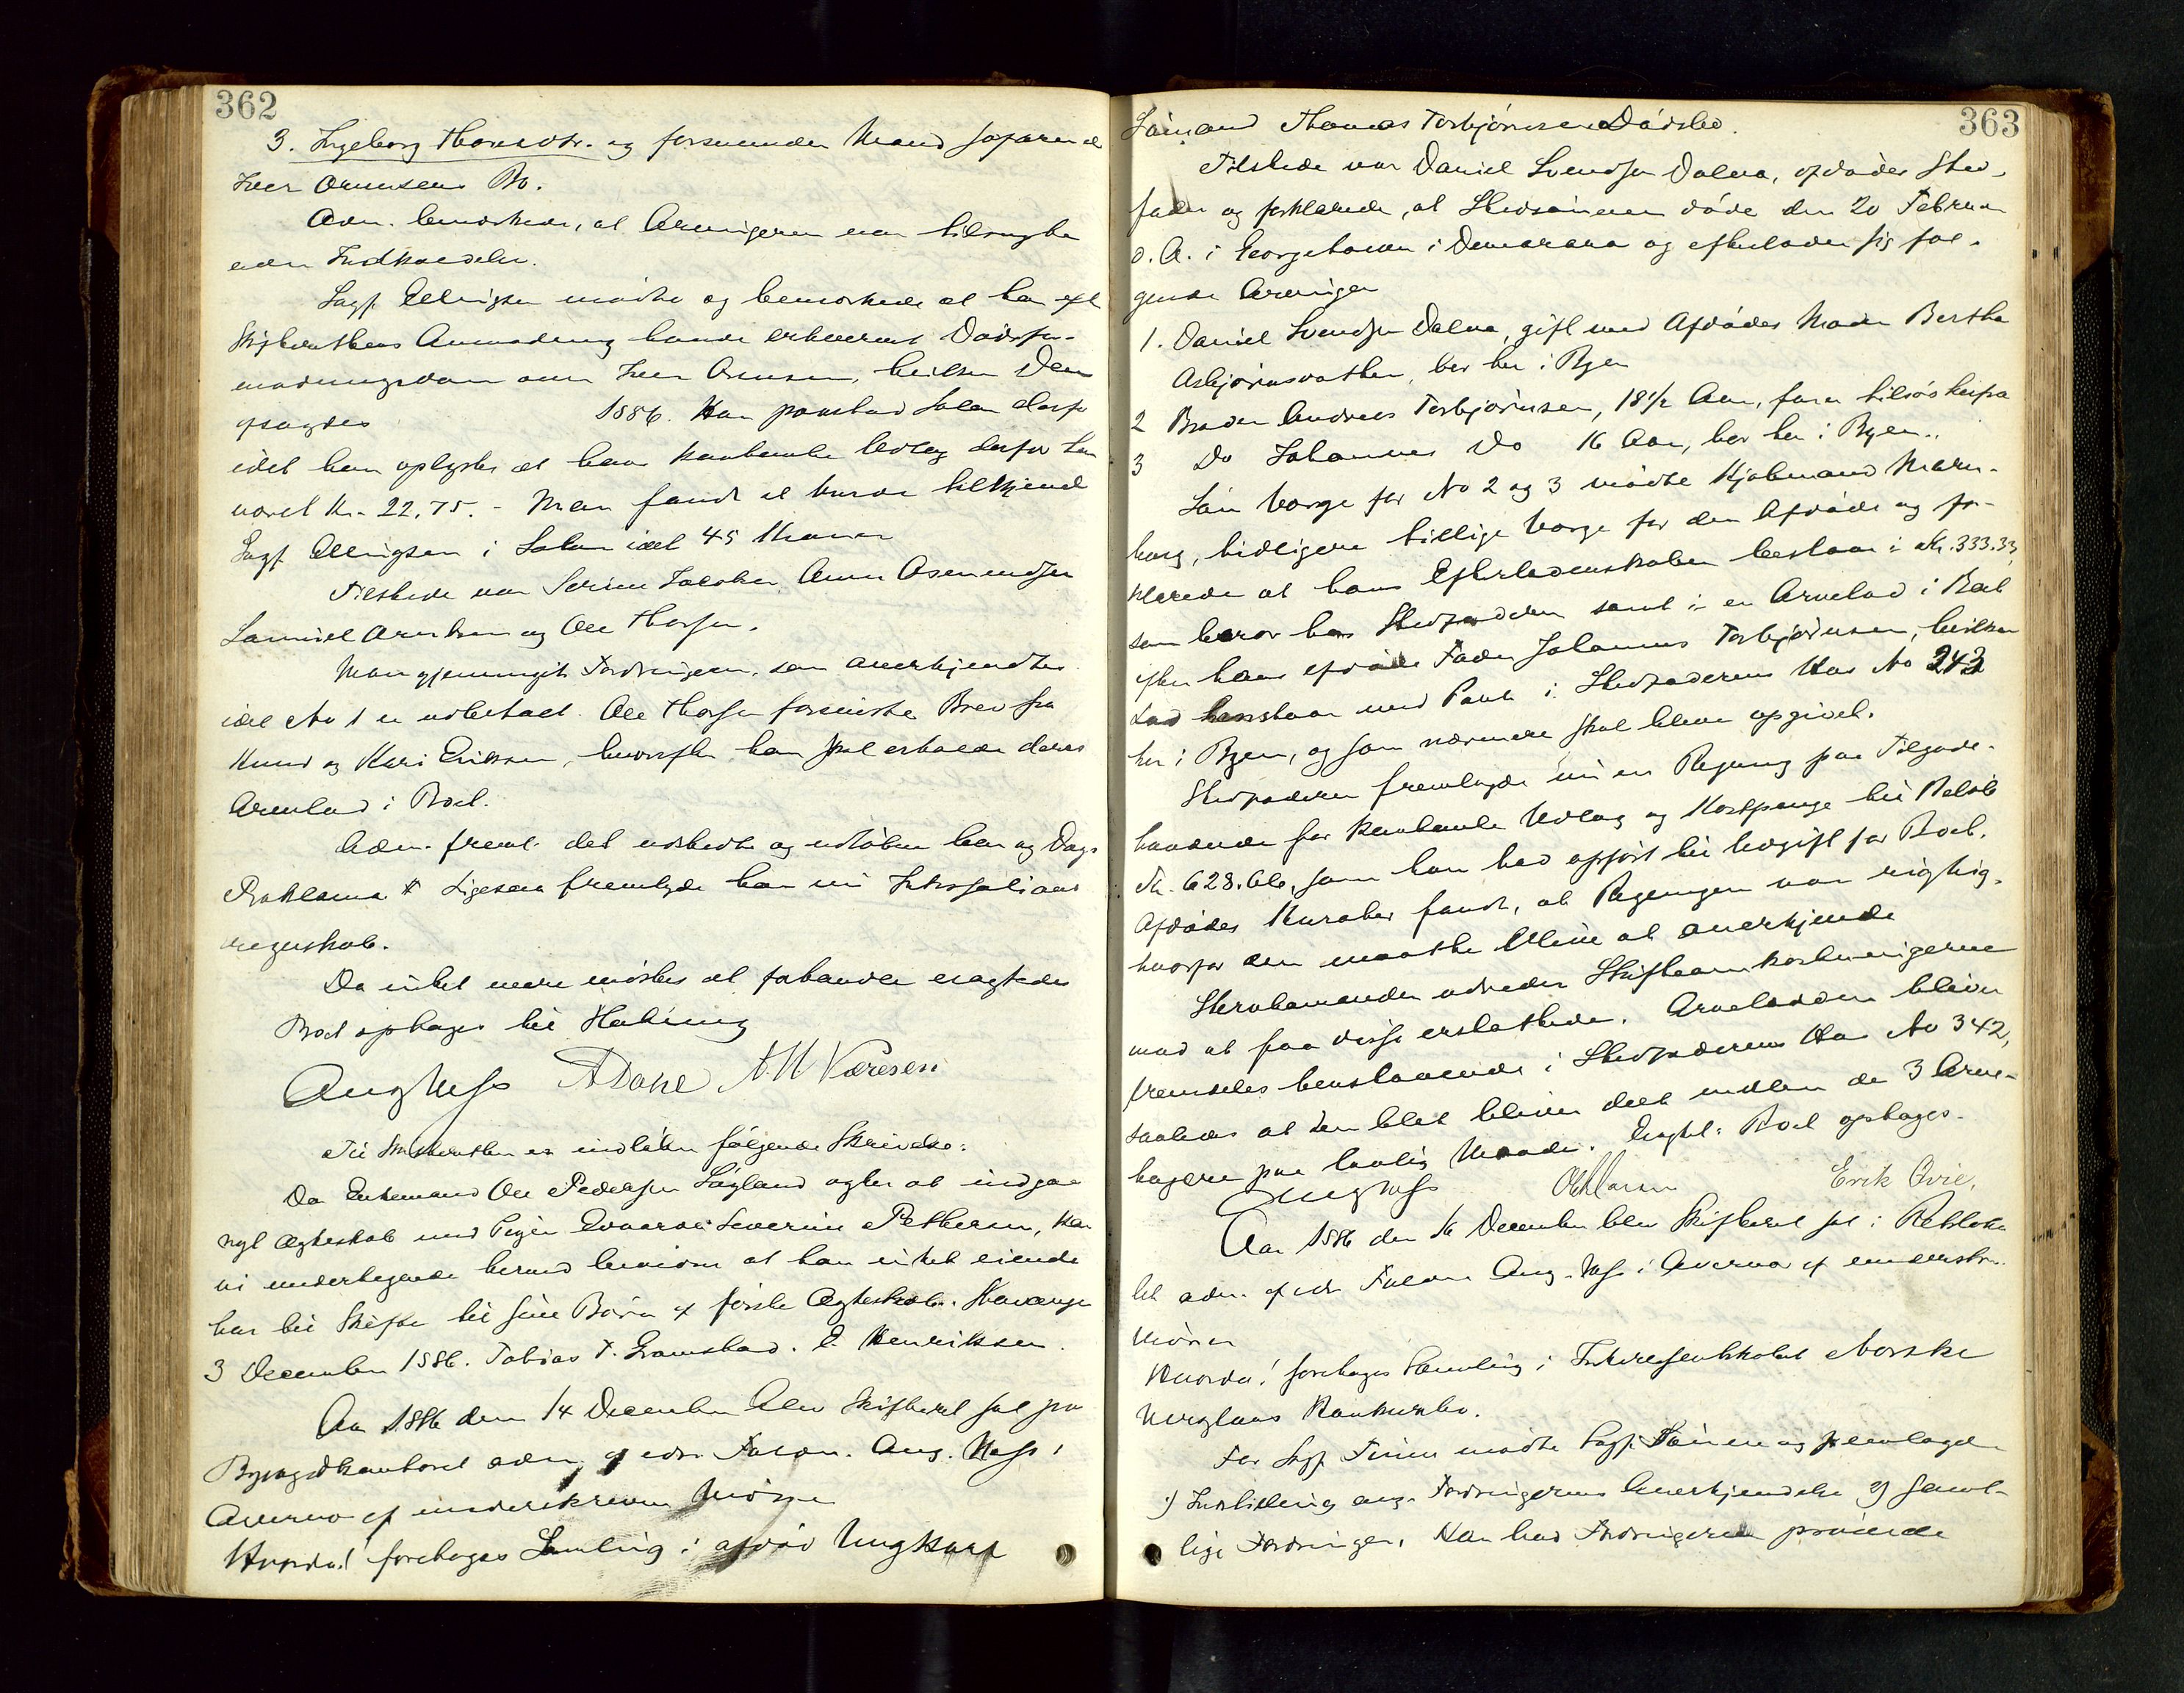 362
3. Ingeborg Thorsdtr. og forsvunden Mand Søfarende
Iver Arnesens Bo.
Adm. bemærkede, at Arvingerne var tilsagte
uden Indkaldelse.
Sagf. Ellingsen mødte og bemærkede at han efter
Skifterettens Anmodning havde erhvervet Dødsfor-
modningsdom over Iver Arnesen, hvilken Dom
afsagdes 1886. Han paastod Salær derfor
idet han oplyste at hans kontante Udlæg derfor har
været Kr. 22.75. - Man fandt at burde tilkjende
Sagf. Ellingsen i Salær ialt 45 Kroner
Tilstede var Serine Jacobsen, Anna Asmundsen
Samuel Arnesen og Ole Thorsen.
Man gjennemgik Fordringerne, som anerkjendtes
idet No 1 er udbetalt. Ole Thorsen foreviste Brev fra
Knud og Kari Eriksen, hvorefter han skal erholde deres
Arvelod i Boet.
Adm. freml. det udstedte og udløbne Aar og Dags
Proklama. Ligesaa fremlagde han nu
regnskab.
Da intet mere vides at forhandle eragtedes
Boet optages til Slutning
Aug Hess A Dahl A. M Væresen
Til Skifteretten er indløben følgende Skrivelse:
Da Enkemand Ole Pedersen Søyland agter at indgaa
nyt Ægteskab med Pigen Severine Pettersen, kan
vi undertegnede herved bevidne at han intet eiende
har til Skifte til sine Børn af første Ægteskab. Stavanger
3 December 1886. Tobias T. Gramstad. E. Henriksen.
Aar 1886 den 14 December blev Skifteret sat paa
Byfogedkontoret adm. af edsv. Fuldm. Aug. Hess i
Overvær af underskrevne Vidner
Hvorda! foretoges Samling i afdød Ungkarl
363
Sømand Thomas Torbjørnsens Dødsbo.
Tilstede var Daniel Svendsen Dalva, afdødes Sted-
fader og forklarede, at Stedsønnen døde den 20 Februar
d. A. i Georgetown i Demarara og efterlader sig føl-
gende Arvinger
1. Daniel Svendsen Dalva, gift med Afdødes Moder Bertha
Asbjørnsdatter, bor her i Byen
2 Broder Andreas Torbjørnsen, 18½ Aar, farer tilsøs herfra
3 Do Johannes Do 16 Aar, bor her i Byen.
Som Værge for No 2 og 3 mødte Kjøbmand
tidligere tillige Værge for den Afdøde og for-
klarede at hans Efterladenskaber bestaar i Kr. 333.33,
som beror hos Stedfaderen samt i en Arvelod i Boet
efter hans afdøde Fader Johannes Torbjørnsen, hvilken
Lod henstaar med Pant i Stedfaderens Hus No 242
her i Byen, og som nærmere skal blive opgivet.
Stedfaderen fremlagde nu en Regning paa Tilgode-
havende for kontante Udlæg og Kostpenge til Beløb
Kr. 628.66, som han havde opført til Udgift for Boet.
Afdødes Kurator fandt, at Regningen var rigtig,
hvorfor den maatte blive at anerkjende
udreder Skifteomkostningerne
mod at faa disse erstattede. Arvelodden bliver
fremdeles henstaaende i Stedfaderens Hus No 342,
saaledes at den blot bliver delt mellem de 3 Arve-
tagere paa lovlig Maade. Eragtet: Boet optages.
Aug Hess Erik Qvie,
Aar 1886 den 16 December blev Skifteret sat i Retsloka-
let adm. af edsv. Fuldm. Aug. Hess i Overvær af underskr.
Vidner
Hvorda! foretoges Samling i Interessentskabet Norske
Konkursbo.
For Sagf. mødte Sagf. og fremlagde
1) Indstilling ang. Fordringernes Anerkjendelse af samt-
lige Fordringer. Han havde Fordringerne prøvede